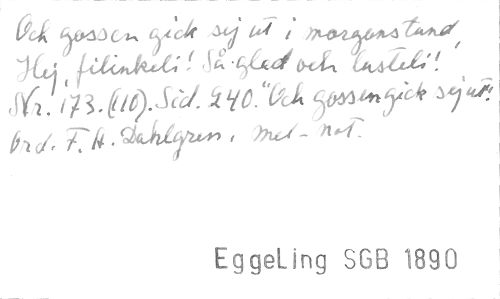 Och gossen gick sej ut i morgonstund,
Hej, filinkeli! Så glad och lusteli!
Nr. 173. (110). Sid. 240. "Och gossen gick sej ut."
Ord. F. A. Dahlgren. mel-not.
EggeLing SGB 1890